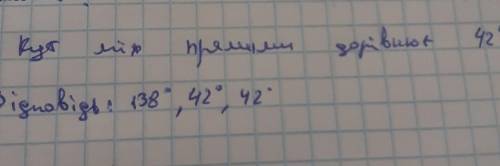 Кут між прямими дорівнює 42°
Відповідь: 138°, 42°, 42°